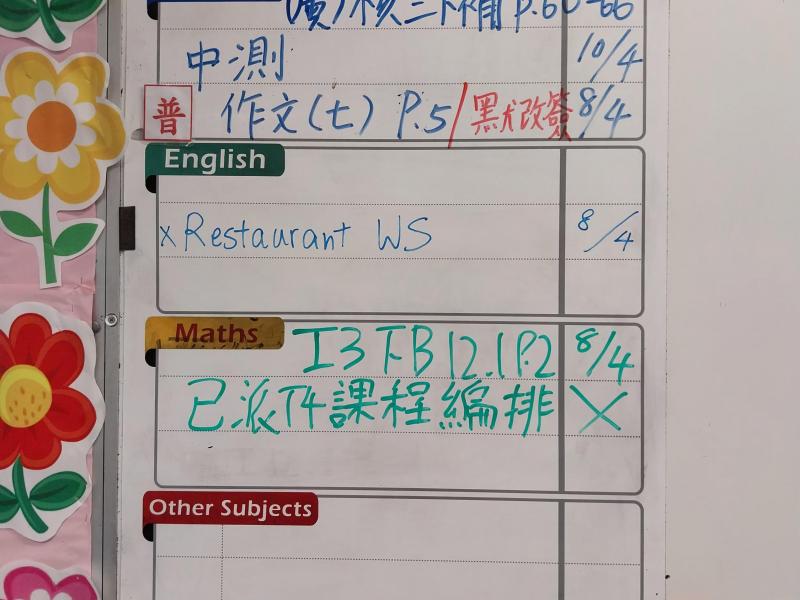 P.60-66
中測 10/4
普 作文(七) P.5/默改簽 8/4
English
x Restaurant WS 8/4
Maths
工3下B 12.1 P.2 8/4
已派T4課程編排 X
Other Subjects